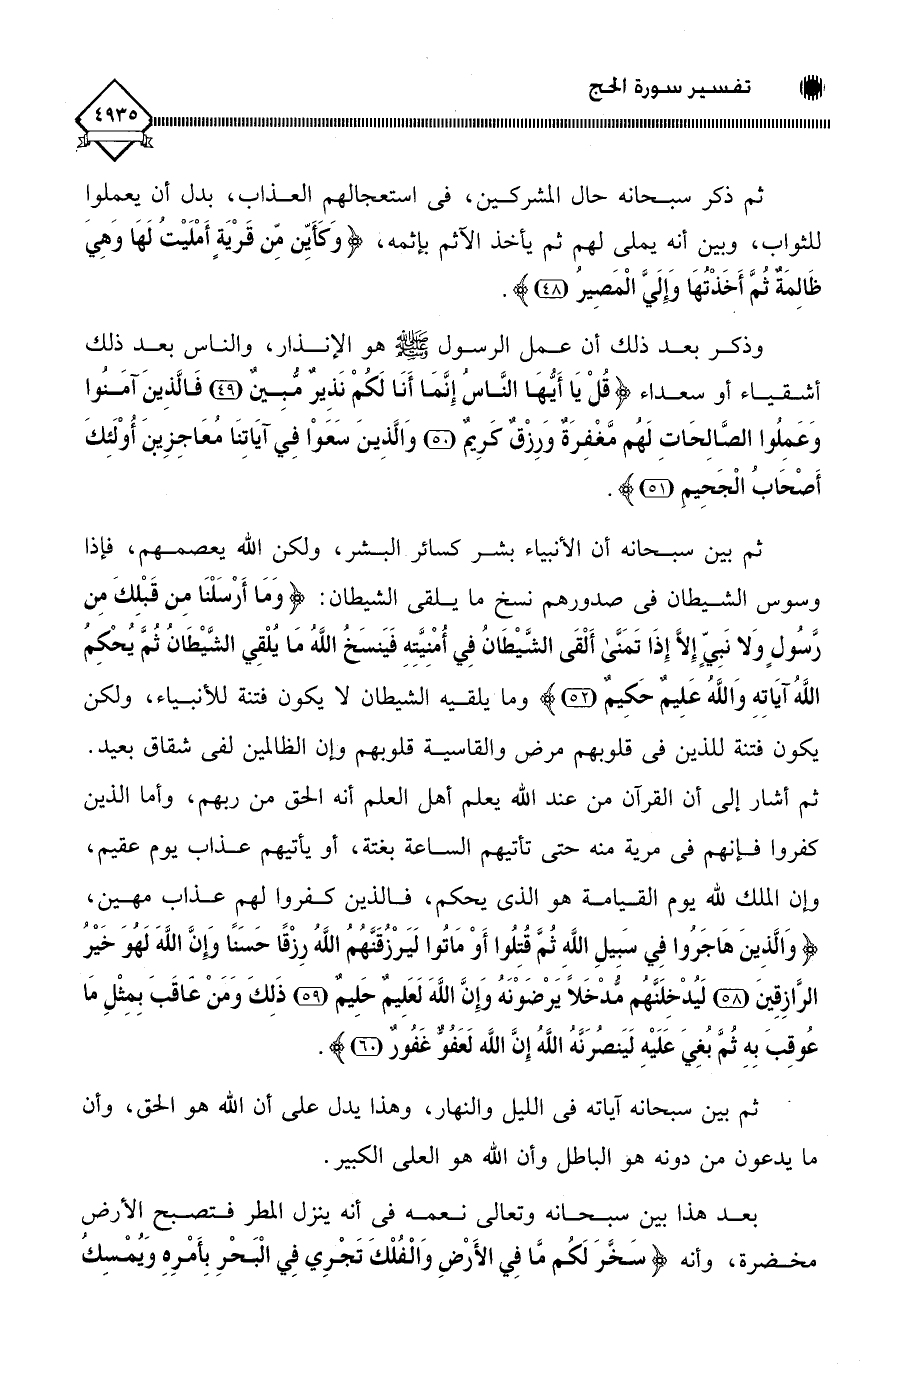 تفسير سورة الحج
٤٩٣٥
ثم ذكر سبحانه حال المشركين، فى استعجالهم العذاب، بدل أن يعملوا
للثواب، وبين أنه يملى لهم ثم يأخذ الآثم بإثمه، ﴿ وَكَأَيِّن مِّن قَرْيَةٍ أَمْلَيْتُ لَهَا وَهِيَ
ظَالِمَةٌ ثُمَّ أَخَذْتُهَا وَإِلَيَّ الْمَصِيرُ (٤٨) ﴾ .
وذكر بعد ذلك أن عمل الرسول ﷺ هو الإنذار، والناس بعد ذلك
أشقياء أو سعداء ﴿ قُلْ يَا أَيُّهَا النَّاسُ إِنَّمَا أَنَا لَكُمْ نَذِيرٌ مُّبِينٌ (٤٩) فَالَّذِينَ آمَنُوا
وَعَمِلُوا الصَّالِحَاتِ لَهُم مَّغْفِرَةٌ وَرِزْقٌ كَرِيمٌ (٥٠) وَالَّذِينَ سَعَوْا فِي آيَاتِنَا مُعَاجِزِينَ أُوْلَئِكَ
أَصْحَابُ الْجَحِيمِ (٥١) ﴾ .
ثم بين سبحانه أن الأنبياء بشر كسائر البشر، ولكن الله يعصمهم، فإذا
وسوس الشيطان فى صدورهم نسخ ما يلقى الشيطان: ﴿ وَمَا أَرْسَلْنَا مِن قَبْلِكَ مِن
رَّسُولٍ وَلا نَبِيٍّ إِلاَّ إِذَا تَمَنَّى أَلْقَى الشَّيْطَانُ فِي أُمْنِيَّتِهِ فَيَنسَخُ اللَّهُ مَا يُلْقِي الشَّيْطَانُ ثُمَّ يُحْكِمُ
اللَّهُ آيَاتِهِ وَاللَّهُ عَلِيمٌ حَكِيمٌ (٥٢) ﴾ وما يلقيه الشيطان لا يكون فتنة للأنبياء، ولكن
يكون فتنة للذين فى قلوبهم مرض والقاسية قلوبهم وإن الظالمين لفى شقاق بعيد.
ثم أشار إلى أن القرآن من عند الله يعلم أهل العلم أنه الحق من ربهم، وأما الذين
كفروا فإنهم فى مرية منه حتى تأتيهم الساعة بغتة، أو يأتيهم عذاب يوم عقيم،
وإن الملك لله يوم القيامة هو الذى يحكم، فالذين كفروا لهم عذاب مهين،
﴿ وَالَّذِينَ هَاجَرُوا فِي سَبِيلِ اللَّهِ ثُمَّ قُتِلُوا أَوْ مَاتُوا لَيَرْزُقَنَّهُمُ اللَّهُ رِزْقًا حَسَنًا وَإِنَّ اللَّهَ لَهُوَ خَيْرُ
الرَّازِقِينَ (٥٨) لَيُدْخِلَنَّهُم مُّدْخَلاً يَرْضَوْنَهُ وَإِنَّ اللَّهَ لَعَلِيمٌ حَلِيمٌ (٥٩) ذَلِكَ وَمَنْ عَاقَبَ بِمِثْلِ مَا
عُوقِبَ بِهِ ثُمَّ بُغِيَ عَلَيْهِ لَيَنصُرَنَّهُ اللَّهُ إِنَّ اللَّهَ لَعَفُوٌّ غَفُورٌ (٦٠) ﴾ .
ثم بين سبحانه آياته فى الليل والنهار، وهذا يدل على أن الله هو الحق، وأن
ما يدعون من دونه هو الباطل وأن الله هو العلى الكبير.
بعد هذا بين سبحانه وتعالى نعمه فى أنه ينزل المطر فتصبح الأرض
مخضرة، وأنه ﴿ سَخَّرَ لَكُم مَّا فِي الأَرْضِ وَالْفُلْكَ تَجْرِي فِي الْبَحْرِ بِأَمْرِهِ وَيُمْسِكُ